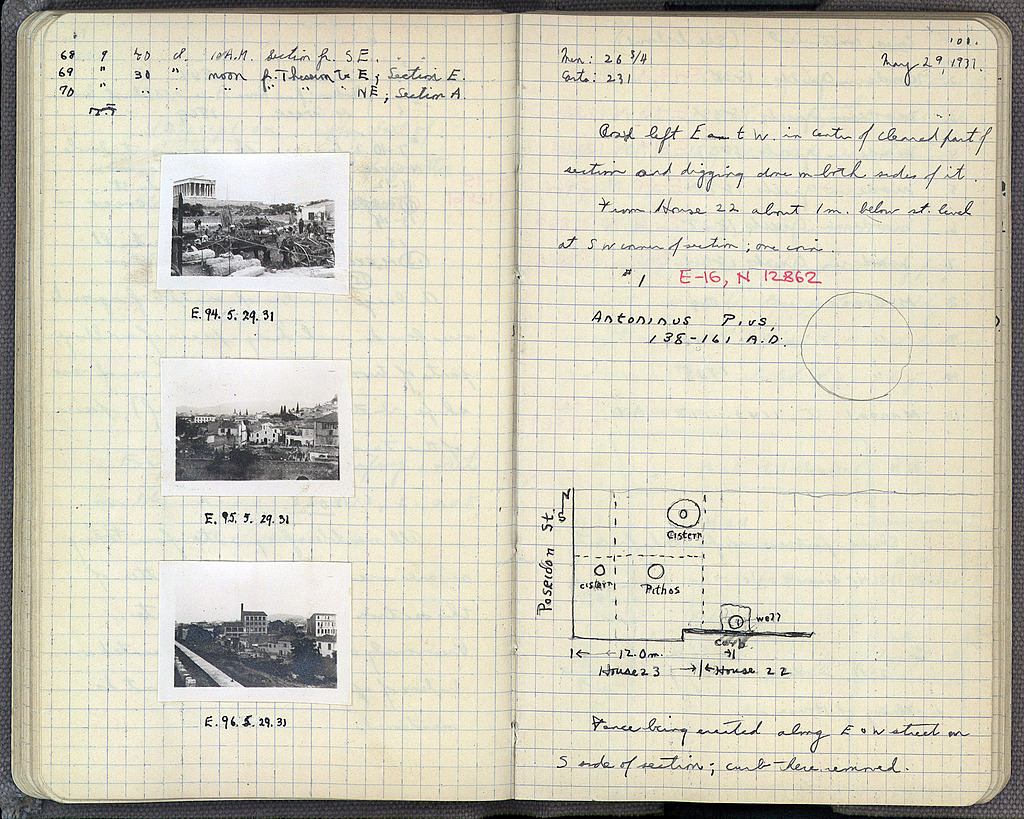 68 9 20 d. 10 A.M. Section fr. SE.
69 " 30 " noon fr. Theseion to E; Section E.
70 " " " " " " NE; Section A.
E. 94. 5. 29. 31
E. 95. 5. 29. 31
E. 96. 5. 29. 31
101.
May 29, 1931.
Men: 26 3/4
Carts: 231
Road left E to W. in center of cleared part of
section and digging done on both sides of it.
From House 22 about 1 m. below st. level
at SW corner of section; one coin.
#1 E-16, N 12862
Antoninus Pius,
138-161 A.D.
Poseidon St.
Cistern
cistern
Pithos
well
curb
12.0m.
House 23
House 22
Fence being erected along E & W street on
S side of section; curb there removed.